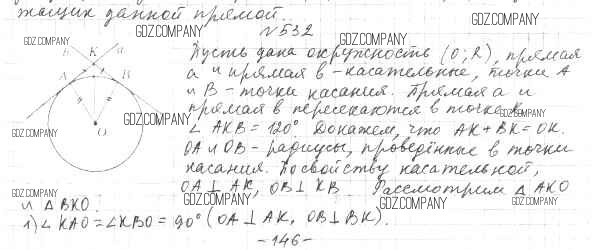 жащих данной прямой.
GDZ.COMPANY
№532
GDZ.COMPANY
GDZ.COMPANY
GDZ.COMPANY
в K а
A B
O
Пусть дана окружность (O; R), прямая
а и прямая в - касательные, точки A
и B - точки касания. Прямая а и
прямая в пересекаются в точке K
GDZ.COMPANY
GDZ.COMPANY
∠ AKB = 120° Докажем, что AK + BK = OK.
GDZ.COMPANY
OA и OB - радиусы, проведённые в точки
касания. По свойству касательной,
OA ⊥ AK, OB ⊥ KB Рассмотрим △ AKO
GDZ.COMPANY
GDZ.COMPANY
GDZ.COMPANY
и △ BKO:
1) ∠ KAO = ∠ KBO = 90° (OA ⊥ AK, OB ⊥ BK).
GDZ.COMPANY
-146-